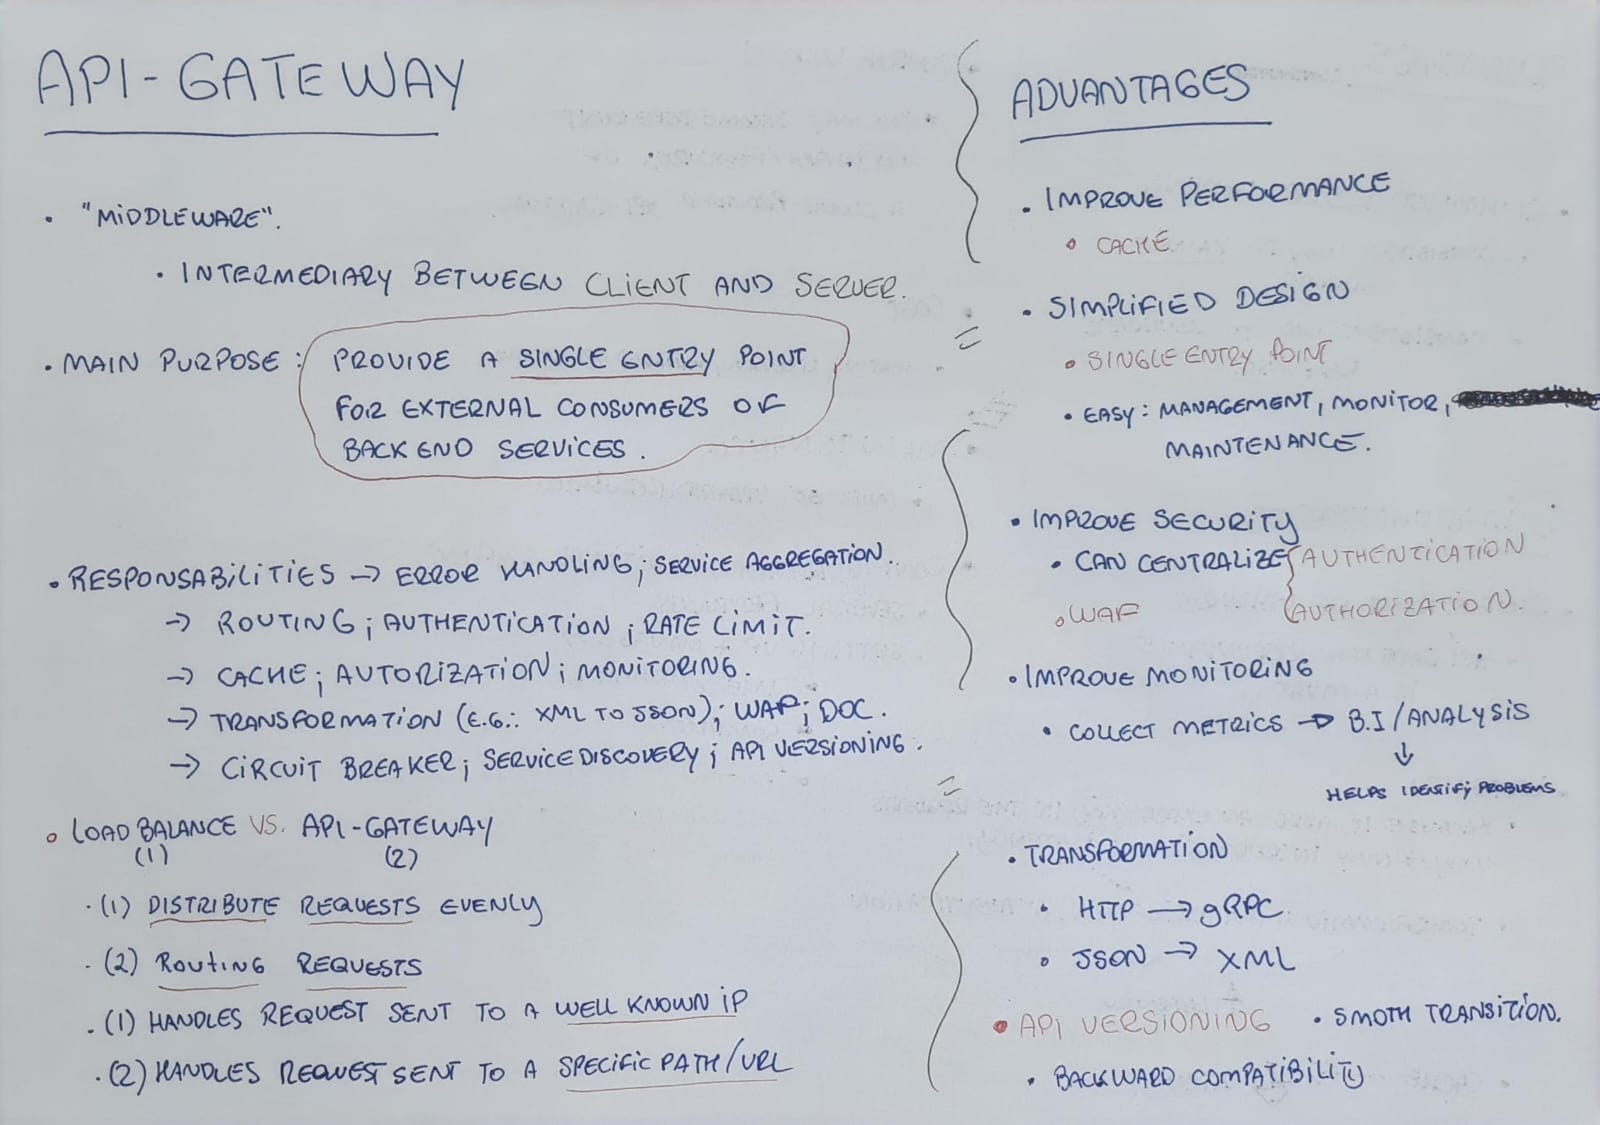 API-GATEWAY
• "MIDDLEWARE".
• INTERMEDIARY BETWEEN CLIENT AND SERVER.
• MAIN PURPOSE: PROVIDE A SINGLE ENTRY POINT
FOR EXTERNAL CONSUMERS OF
BACKEND SERVICES.
• RESPONSABILITIES → ERROR HANDLING; SERVICE AGGREGATION.
→ ROUTING; AUTHENTICATION; RATE LIMIT.
→ CACHE; AUTORIZATION; MONITORING.
→ TRANSFORMATION (E.G.: XML TO JSON); WAF; DOC.
→ CIRCUIT BREAKER; SERVICE DISCOVERY; API VERSIONING.
• LOAD BALANCE VS. API-GATEWAY
(1) (2)
• (1) DISTRIBUTE REQUESTS EVENLY
• (2) ROUTING REQUESTS
• (1) HANDLES REQUEST SENT TO A WELL KNOWN IP
• (2) HANDLES REQUEST SENT TO A SPECIFIC PATH/URL
ADVANTAGES
• IMPROVE PERFORMANCE
• CACHE
• SIMPLIFIED DESIGN
• SINGLE ENTRY POINT
• EASY: MANAGEMENT, MONITOR,
MAINTENANCE.
• IMPROVE SECURITY
• CAN CENTRALIZE { AUTHENTICATION
• WAF { AUTHORIZATION.
• IMPROVE MONITORING
• COLLECT METRICS → B.I/ANALYSIS
↓
HELPS IDENTIFY PROBLEMS
• TRANSFORMATION
• HTTP → gRPC
• JSON → XML
• API VERSIONING • SMOTH TRANSITION.
• BACKWARD COMPATIBILITY